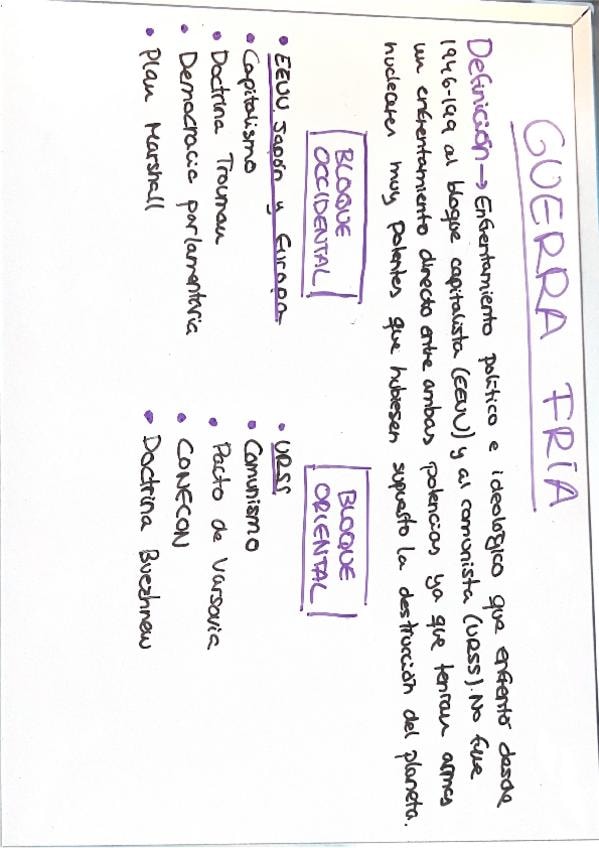 GUERRA FRÍA
Definición → Enfrentamiento político e ideológico que enfrentó desde
1946-199 al bloque capitalista (EEUU) y al comunista (URSS). No fue
un enfrentamiento directo entre ambas potencias ya que tenían armas
nucleares muy potentes que hubiesen supuesto la destrucción del planeta.
BLOQUE
OCCIDENTAL
• EEUU, Japón y Europa
• Capitalismo
• Doctrina Truman
• Democracia parlamentaria
• Plan Marshall
BLOQUE
ORIENTAL
• URSS
• Comunismo
• Pacto de Varsovia
• CONECON
• Doctrina Buezhnew